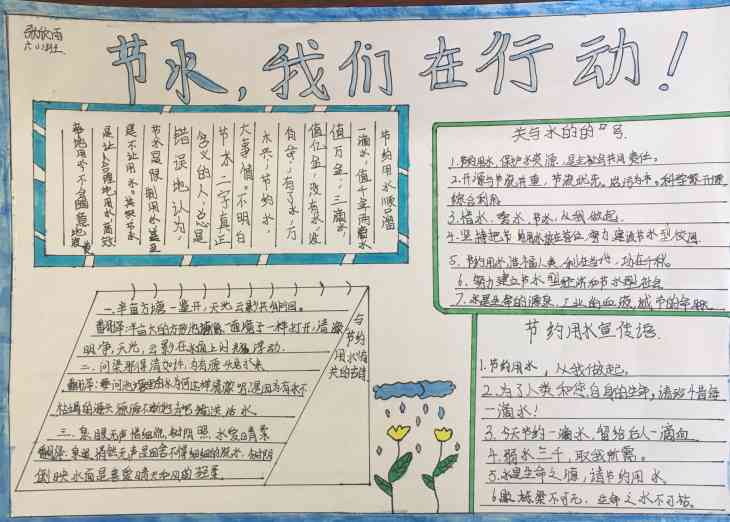 节水，我们在行动！
六(1)班
节约用水顺口溜
一滴水，值千金，两滴水，
值万金，三滴水，
值亿金，没有水，没
有命，有了水，万
木兴，节约水，
大事情。不明白
节水二字真正
含义的人，总是
错误地认为，
节水是限制用水，甚至
是不让用水。其实节水
是让人合理地用水，高效
率地用水，不会随意地浪
费
关与水的的口号
1.节约用水，保护水资源，是全社会共同责任。
2.开源与节流并重，节流优先，治污为本，科学开源
综合利用
3.惜水、爱水、节水，从我做起。
4.坚持把节约用水放在首位，努力建设节水型校园
5.节约用水造福人类，利在当代，功在千秋。
6.努力建立节水型经济和节水型社会
7.水是生命的源泉，工业的血液，城市的命脉
与节约用水有关的古诗
一.半亩方塘一鉴开，天光云影共徘徊。
翻译：半亩大的方形池塘像一面镜子一样打开，清澈
明净，天光、云影在水面上闪耀浮动。
二.问渠那得清如许，为有源头活水来
翻译：要问池塘里的水为何这样清澈明，是因为有永不
枯竭的源头源源不断地为它输送活水
三.泉眼无声惜细流，树阴照水爱晴柔
翻译：泉眼悄然无声是因舍不得细细的流水，树阴
倒映水面是喜爱晴天和风的轻柔
节约用水宣传语
1.节约用水，从我做起。
2.为了人类和您自身的生命，请珍惜每
一滴水！
3.今天节约一滴水，留给后人一滴血
4.弱水三千，取我所需。
5.水是生命之源，请节约用水
不可无，生命之水不可枯。